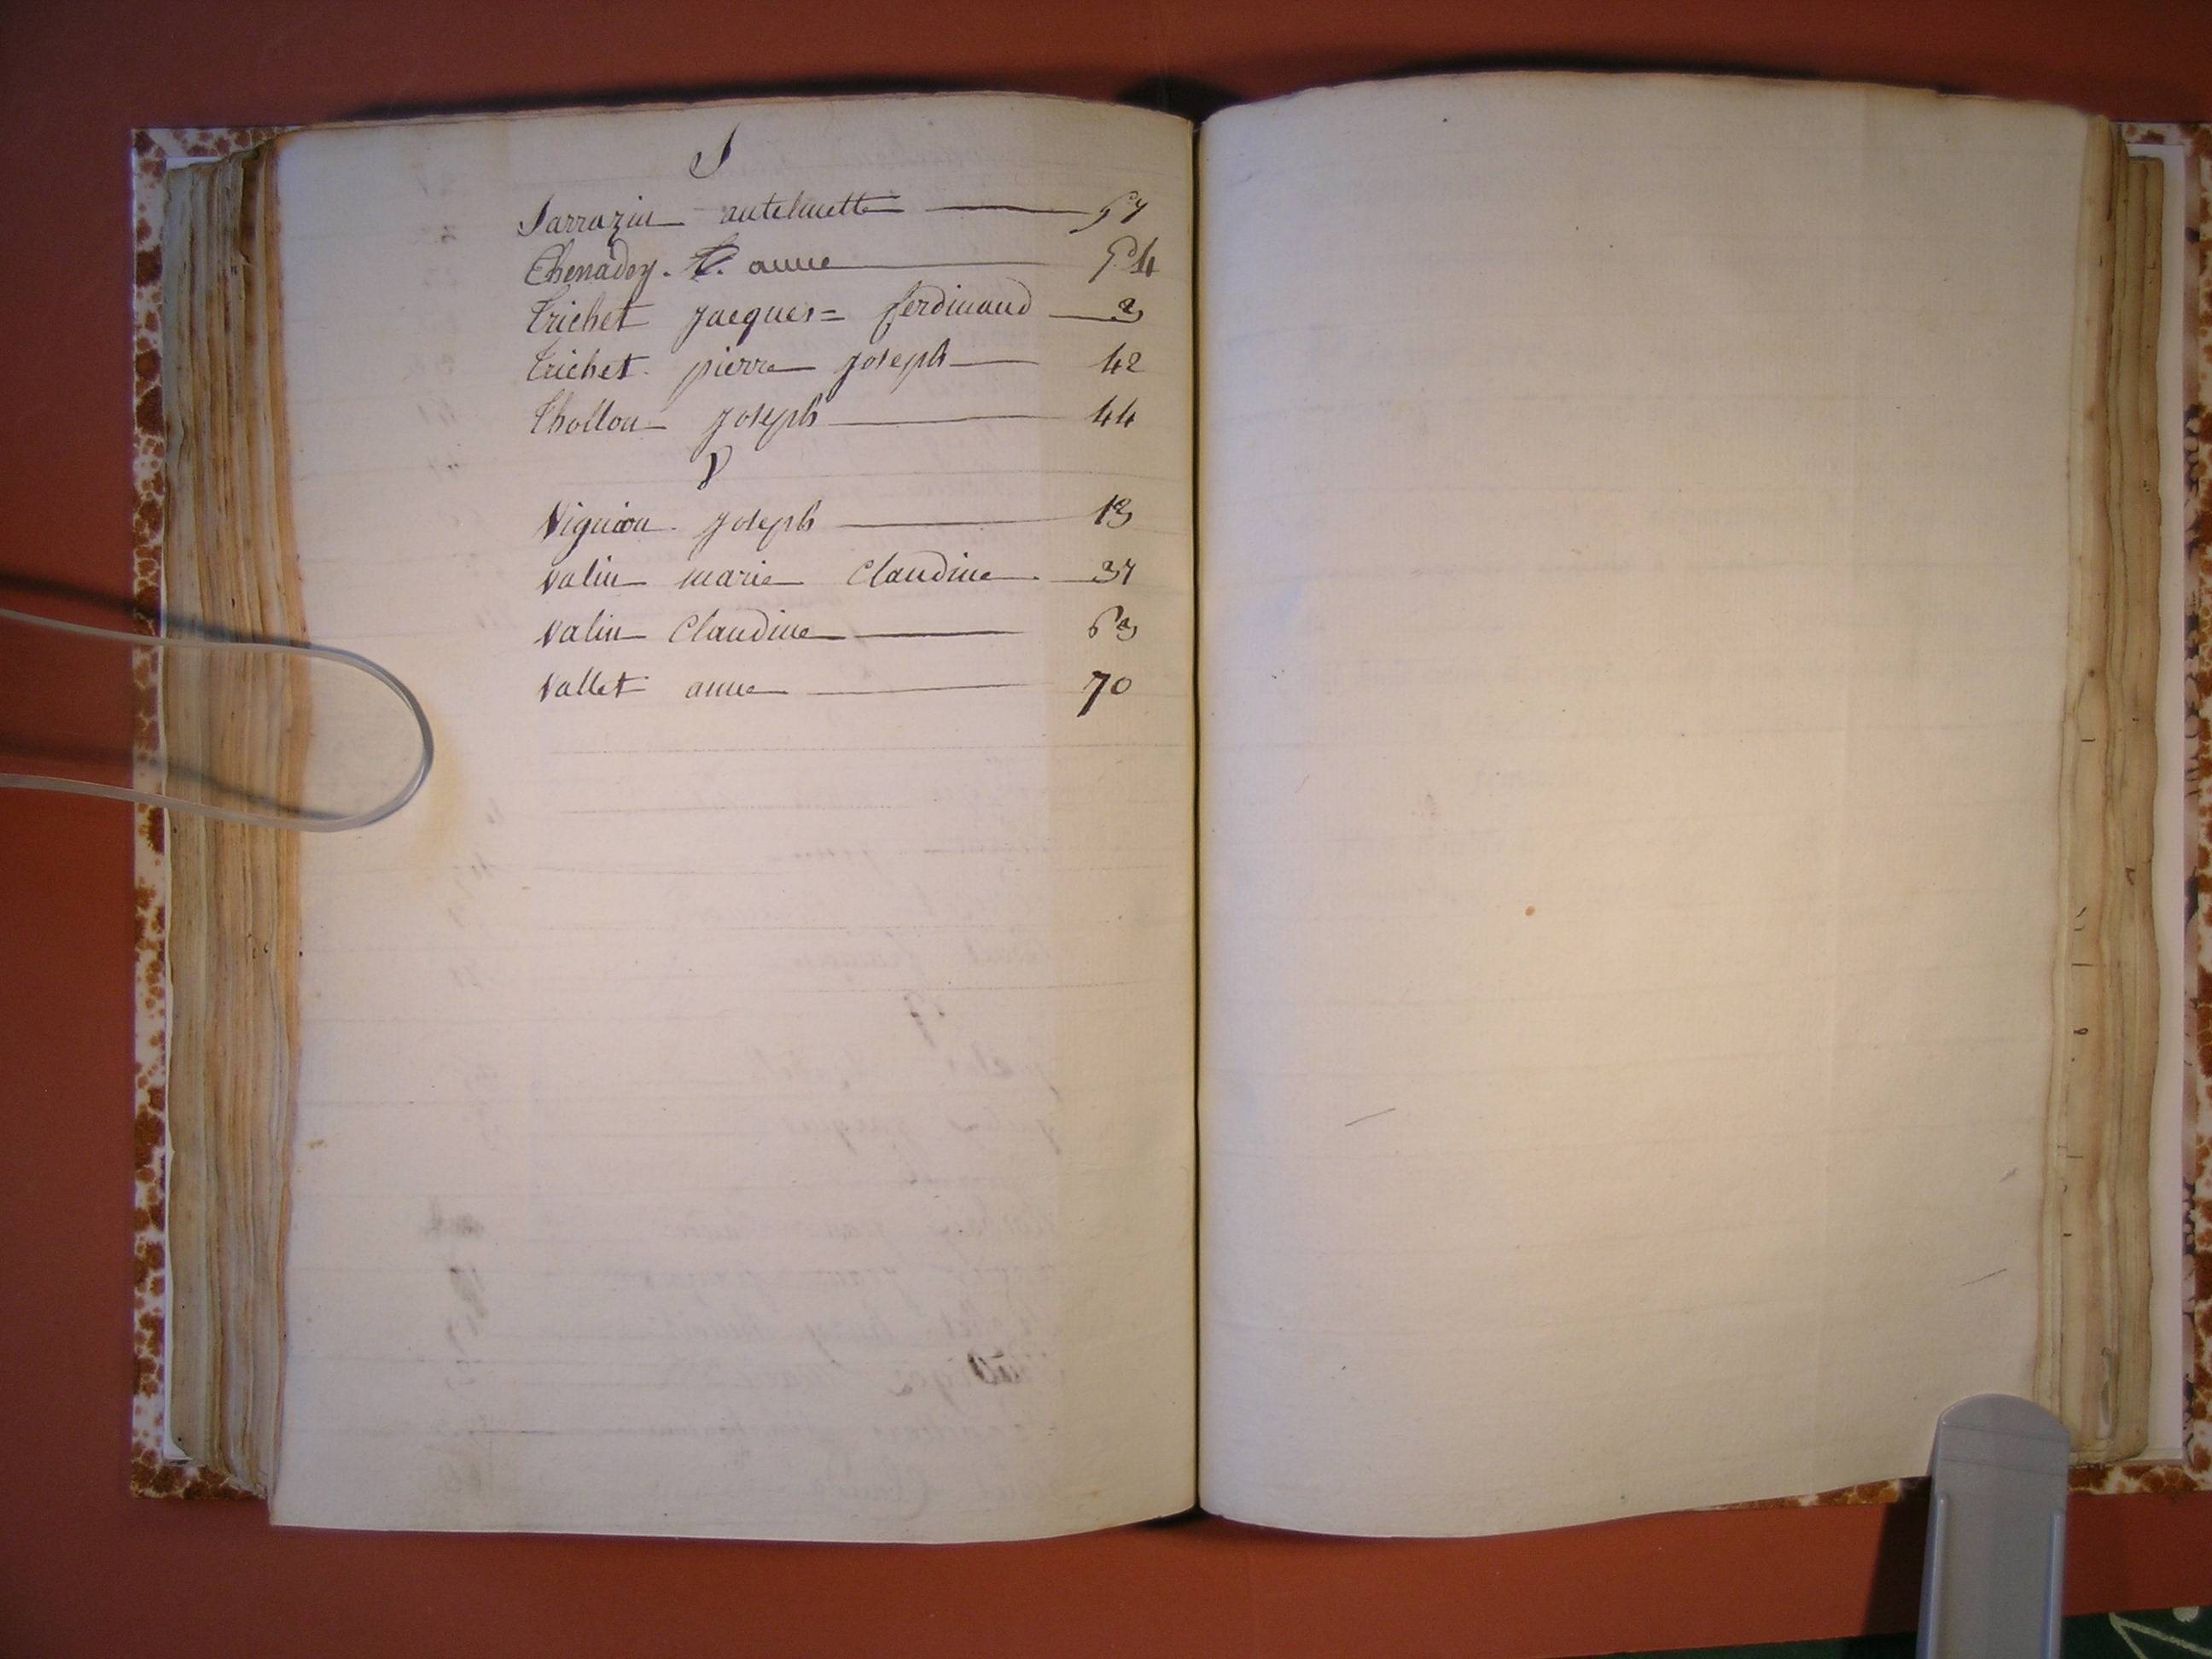 S
Sarrazin antelmette 57
Thenadey. anne 54
trichet jacques = ferdinand 3
trichet. pierre joseph 42
thollon joseph 44
V
Vignion. joseph 13
valin marie Claudine. 37
valin Claudine 63
vallet anne 70